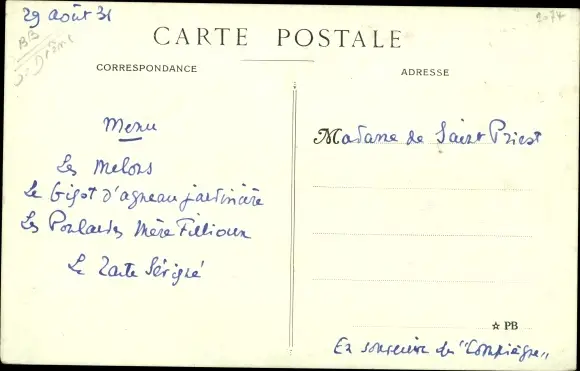 29 août 31
2-74
BB
Drôme
CARTE POSTALE
CORRESPONDANCE
ADRESSE
Menu
Les Melons
Le Gigot d'agneau jardinière
Les Poulardes Mère Fillioux
Le Tarte Sévigné
Madame de Saint Priest
☆ PB
En souvenir du "Compiègne"